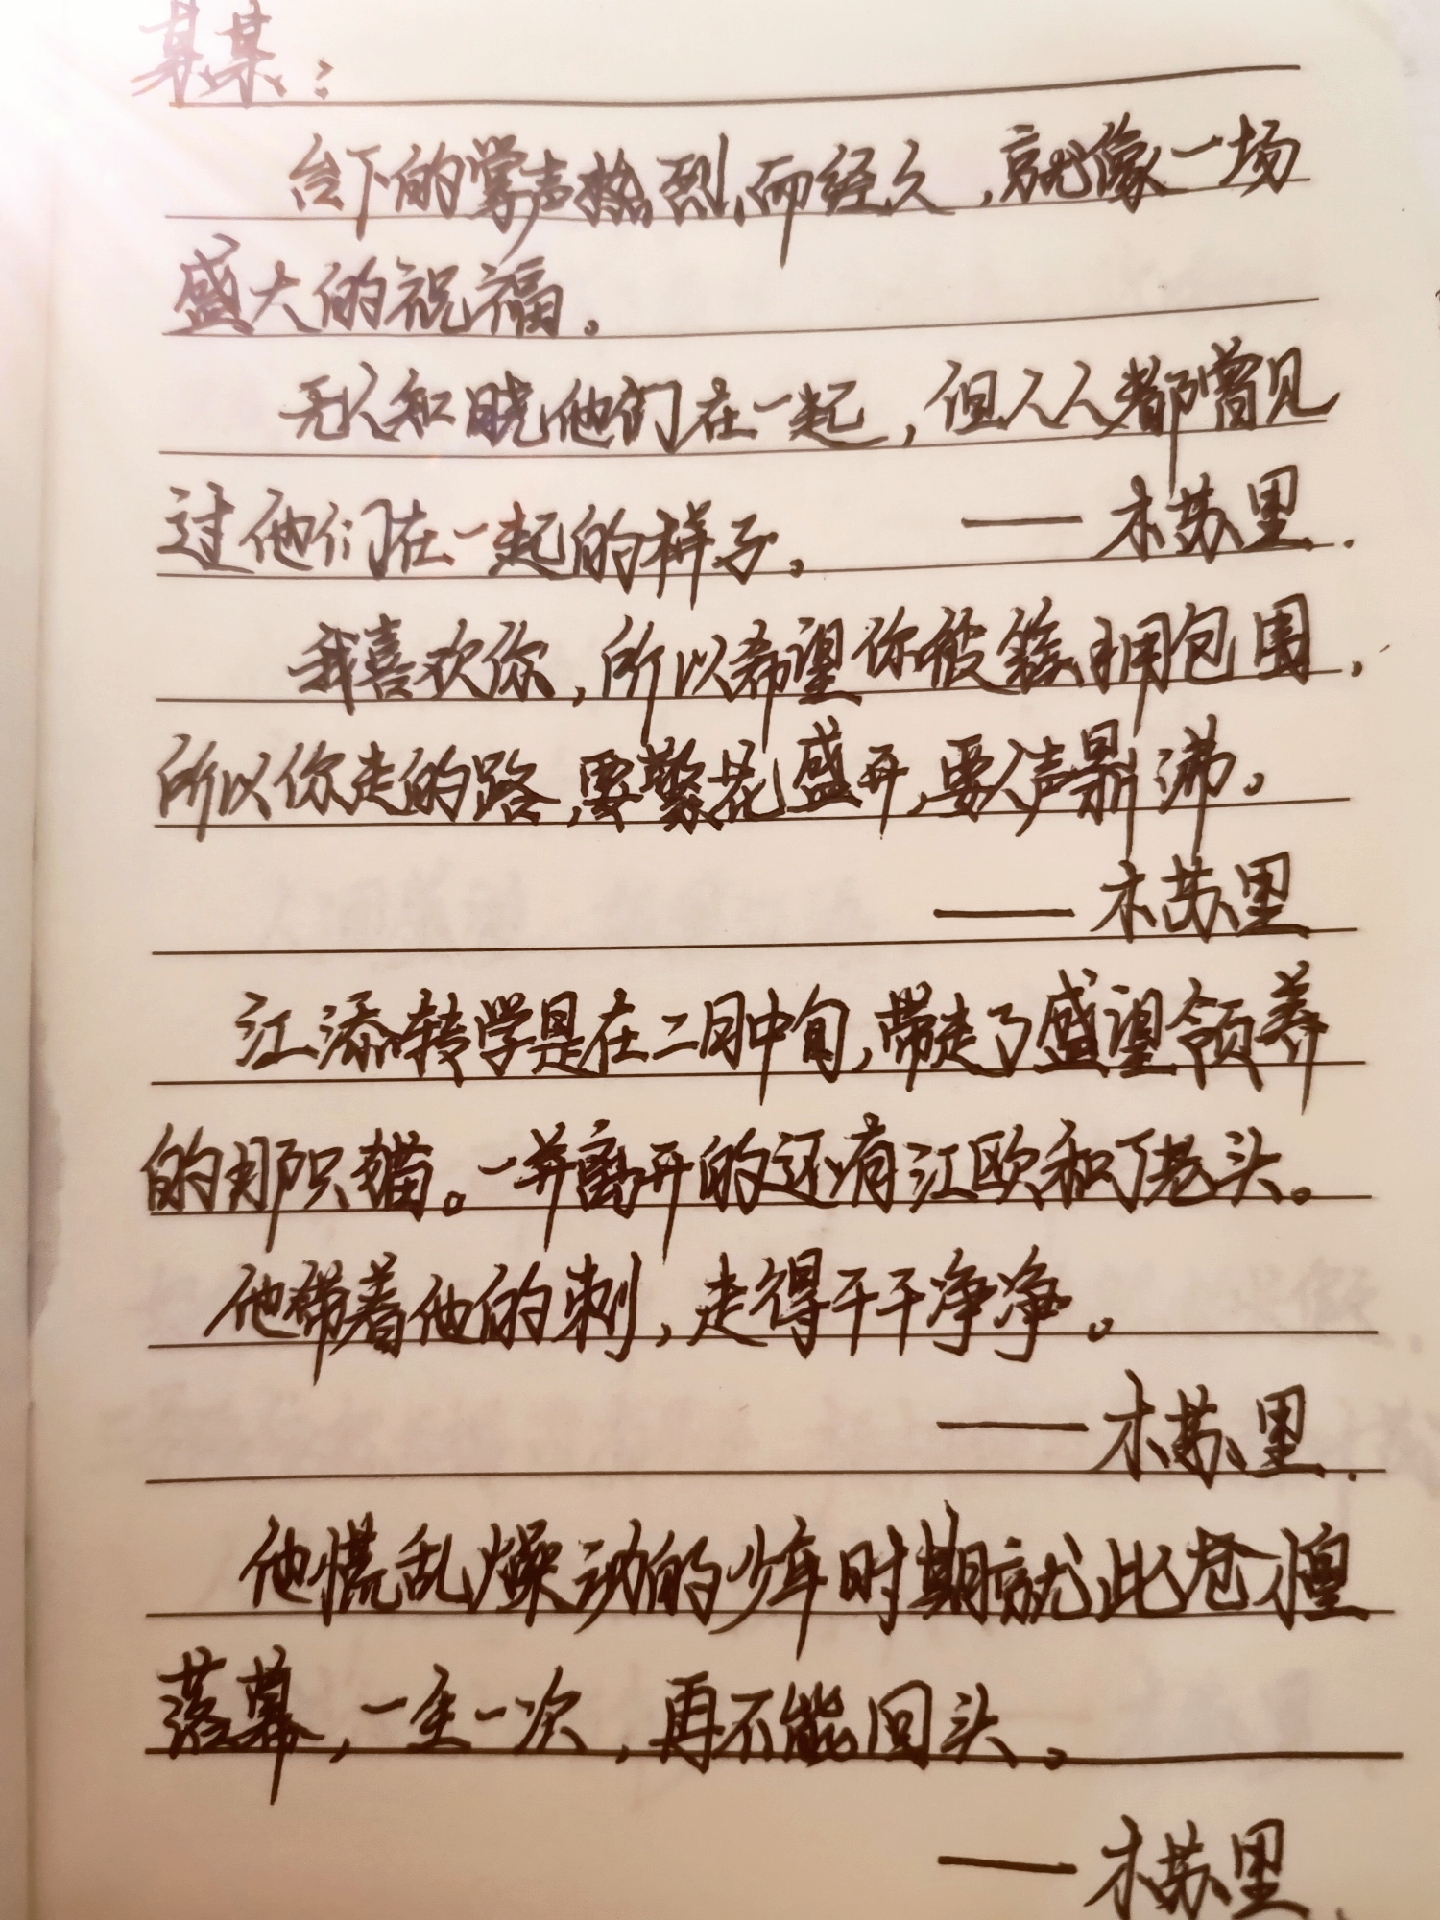 某某：
台下的掌声热烈而经久，就像一场
盛大的祝福。
无人知晓他们在一起，但人人都曾见
过他们在一起的样子。 —— 木苏里.
我喜欢你，所以希望你被簇拥包围，
所以你走的路，要繁花盛开，要人声鼎沸。
—— 木苏里
江添转学是在二月中旬，带走了盛望领养
的那只猫。一并离开的还有江欧和丁老头。
他带着他的刺，走得干干净净。
—— 木苏里.
他慌乱燥动的少年时期就此仓惶
落幕，一生一次，再不能回头。
—— 木苏里.